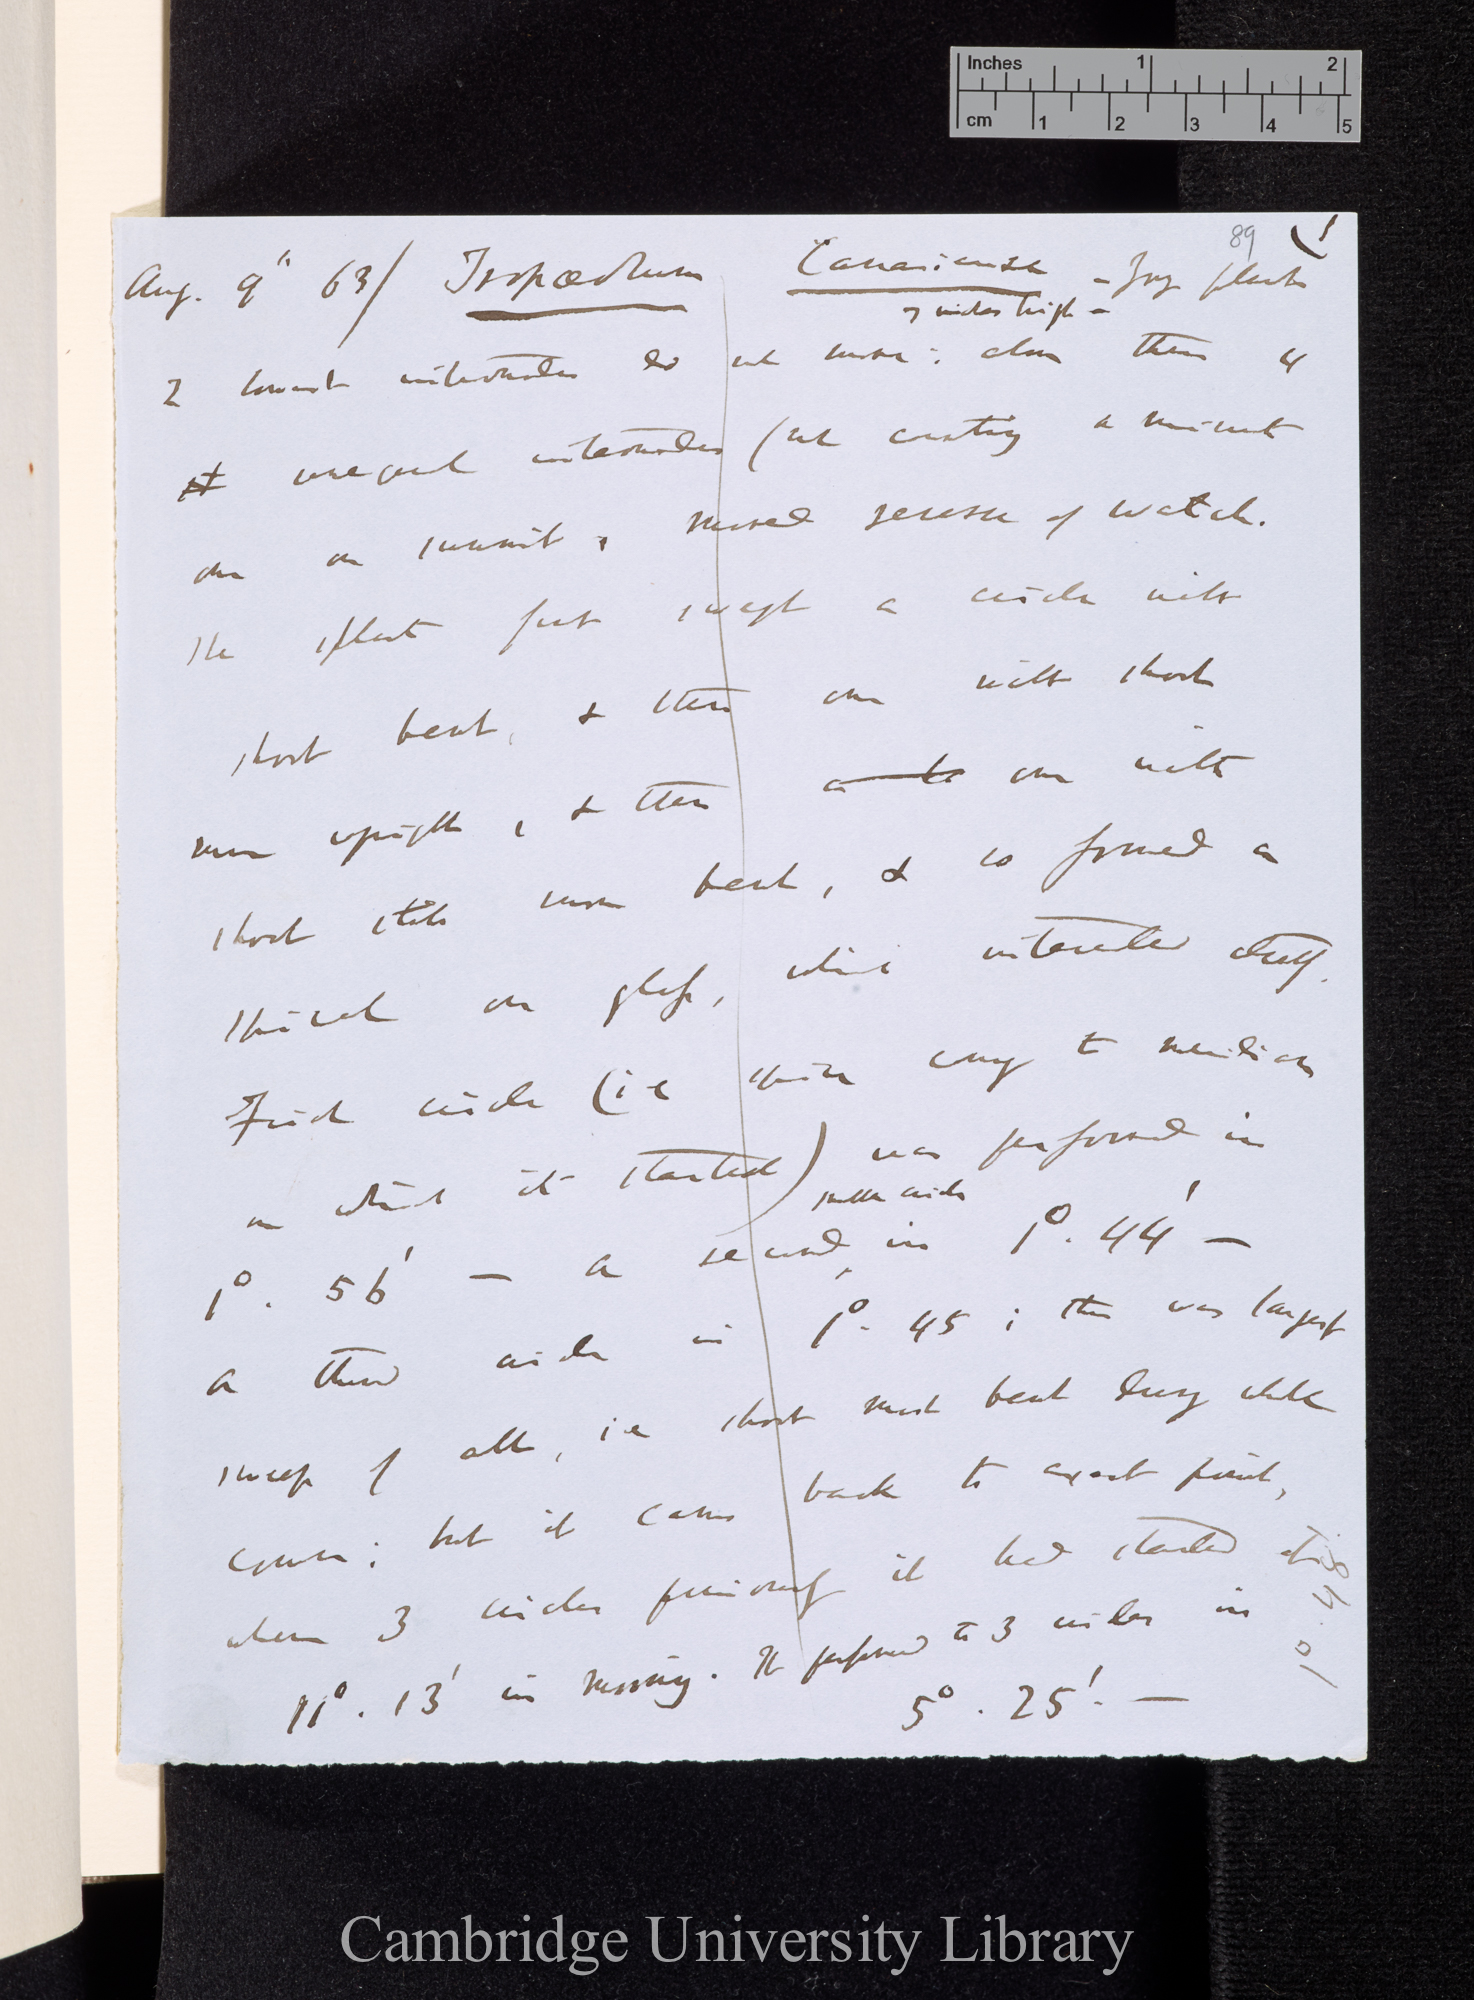 Inches 1 2
cm 1 2 3 4 5
89 1
Aug. 9" 63/ Tropæolum Canariense – Young plant
7 inches high –
2 lowest internodes do not move: above them 4
unequal internodes (not counting a minute
one on summit, moved reverse of watch.
The plant first swept a circle with
shoot bent, & then one with shoot
more upright, & then one with
shoot still more bent, & so formed a
spiral on glass, which intersected itself.
First circle (ie spire coming to meridian
on which it started) was performed in
1°. 56' — a second, smaller circle in 1°. 44' —
a third circle in 1°. 45; this was largest
sweep of all, ie shoot most bent during whole
course; but it came back to exact point,
whence 3 circles previously it had started at
11°. 13' in morning. It performed to 3 circles in
5°. 25'. —
1°. 48'.
Cambridge University Library